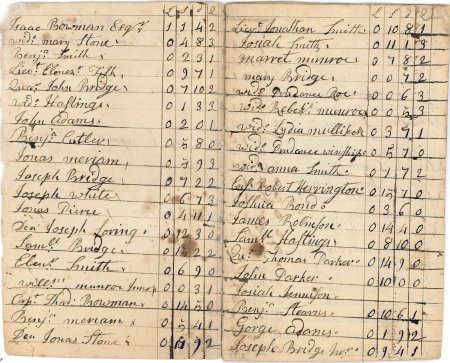 L S D 2
Isaac Bowman Esqr 1 1 4 2
wido mary Stone 0 4 8 3
Benjn Smith 0 2 3 1
Lieut Ebenezr Fisk 0 9 7 1
Deacn John Bridge 0 7 10 2
wido Hastings 0 1 3 3
John Adams 0 2 0 1
Benjn Cutler 0 5 8 0
Jonas meriam 0 5 9 3
Joseph Bridge 0 7 2 2
Joseph white 0 6 7 3
Jonas Peirce 0 4 11 1
Dea Joseph Loring 0 12 3 0
Samll Bridge 0
Ebenr Smith 0 6 9 0
munroe
Capt Thad: Bowman 0 14 5 0
Benjn meriam 0 5 4 1
Dea Jonas Stone 0 11 9 2
L S D
Lieut Jonathan Smith 0 10 8 1
Josiah Smith 0 11 1 3
marret munroe 0 7 8 2
mary Bridge 0 0 7 2
wido Prudance Roe 0 0 6 3
wido Rebekh munroe 0 0 5 3
wido Lydia mulliken 0 3 7 1
wido Prudance winship 0 5 7 0
wido anna Smith 0 1 7 2
Robert Herrington 0 15 7 0
Joshua Bond 0 3 6 0
James Robinson 0 14 4 0
Samll Hastings 0 8 10 0
Thomas Parker 0 14 9 0
John Parker 0 10 0 0
Josiah Jennison
Benjn Stearns 0 10 6 1
Gorge Adams 0 1 9 2
Joseph Bridge Junr 0 9 4 1